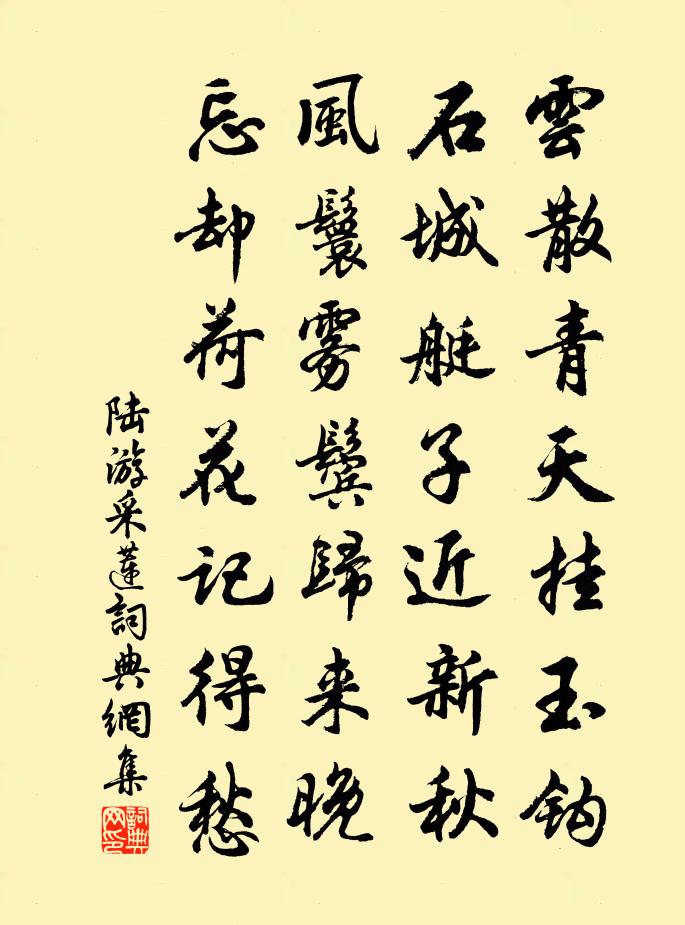 雲散青天挂玉鈎
石城艇子近新秋
風鬟霧鬢歸来晚
忘却荷花記得愁
陆游采蓮詞典網集
詞典
网印